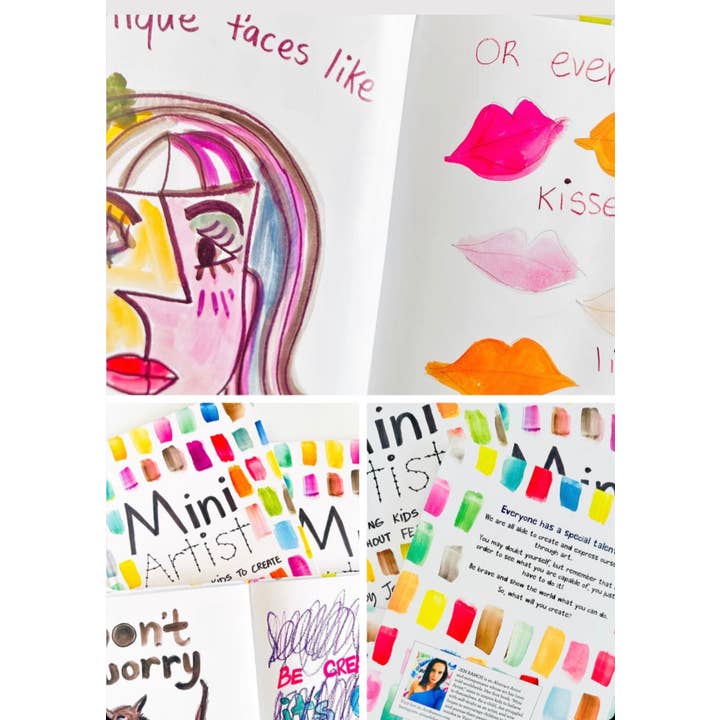 nique faces like
OR ever
Kisse
li
Mini
Artist
KIDS TO CREATE
M
on't
orry
BE CRE
ini
tist
NG KIDS
HOUT FE
by Je
Min
Everyone has a special talent
We are all able to create and express ourse
through art.
You may doubt yourself, but remember that
order to see what you are capable of, you just
have to do it!
Be brave and show the world what you can do.
So, what will you create?
JEN RAMOS is an Abstract Artist